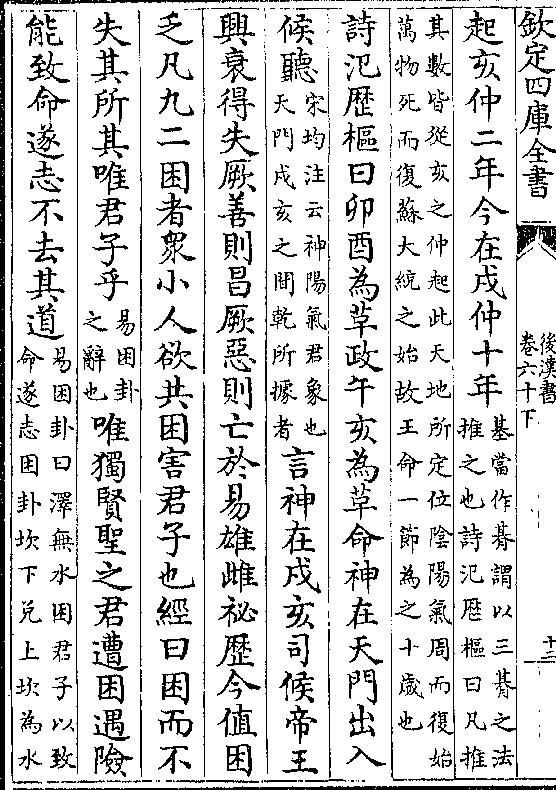 欽定四庫全書
後漢書
卷六十下
十三
起亥仲二年今在戌仲十年
基當作朞謂以三朞之法
推之也詩汜厯樞曰凡推
其數皆從亥之仲起此天地所定位隂陽氣周而復始
萬物死而復蘇大統之始故王命一節為之十歲也
詩汜歴樞曰卯酉為革政午亥為革命神在天門出入
候聽
宋均注云神陽氣君象也
天門戌亥之間乾所據者
言神在戌亥司候帝王
興衰得失厥善則昌厥惡則亡於易雄雌祕歴今值困
乏凡九二困者衆小人欲共困害君子也經曰困而不
失其所其唯君子乎
易困卦
之辭也
唯獨賢聖之君遭困遇險
能致命遂志不去其道
易困卦曰澤無水困君子以致
命遂志困卦坎下兌上坎為水